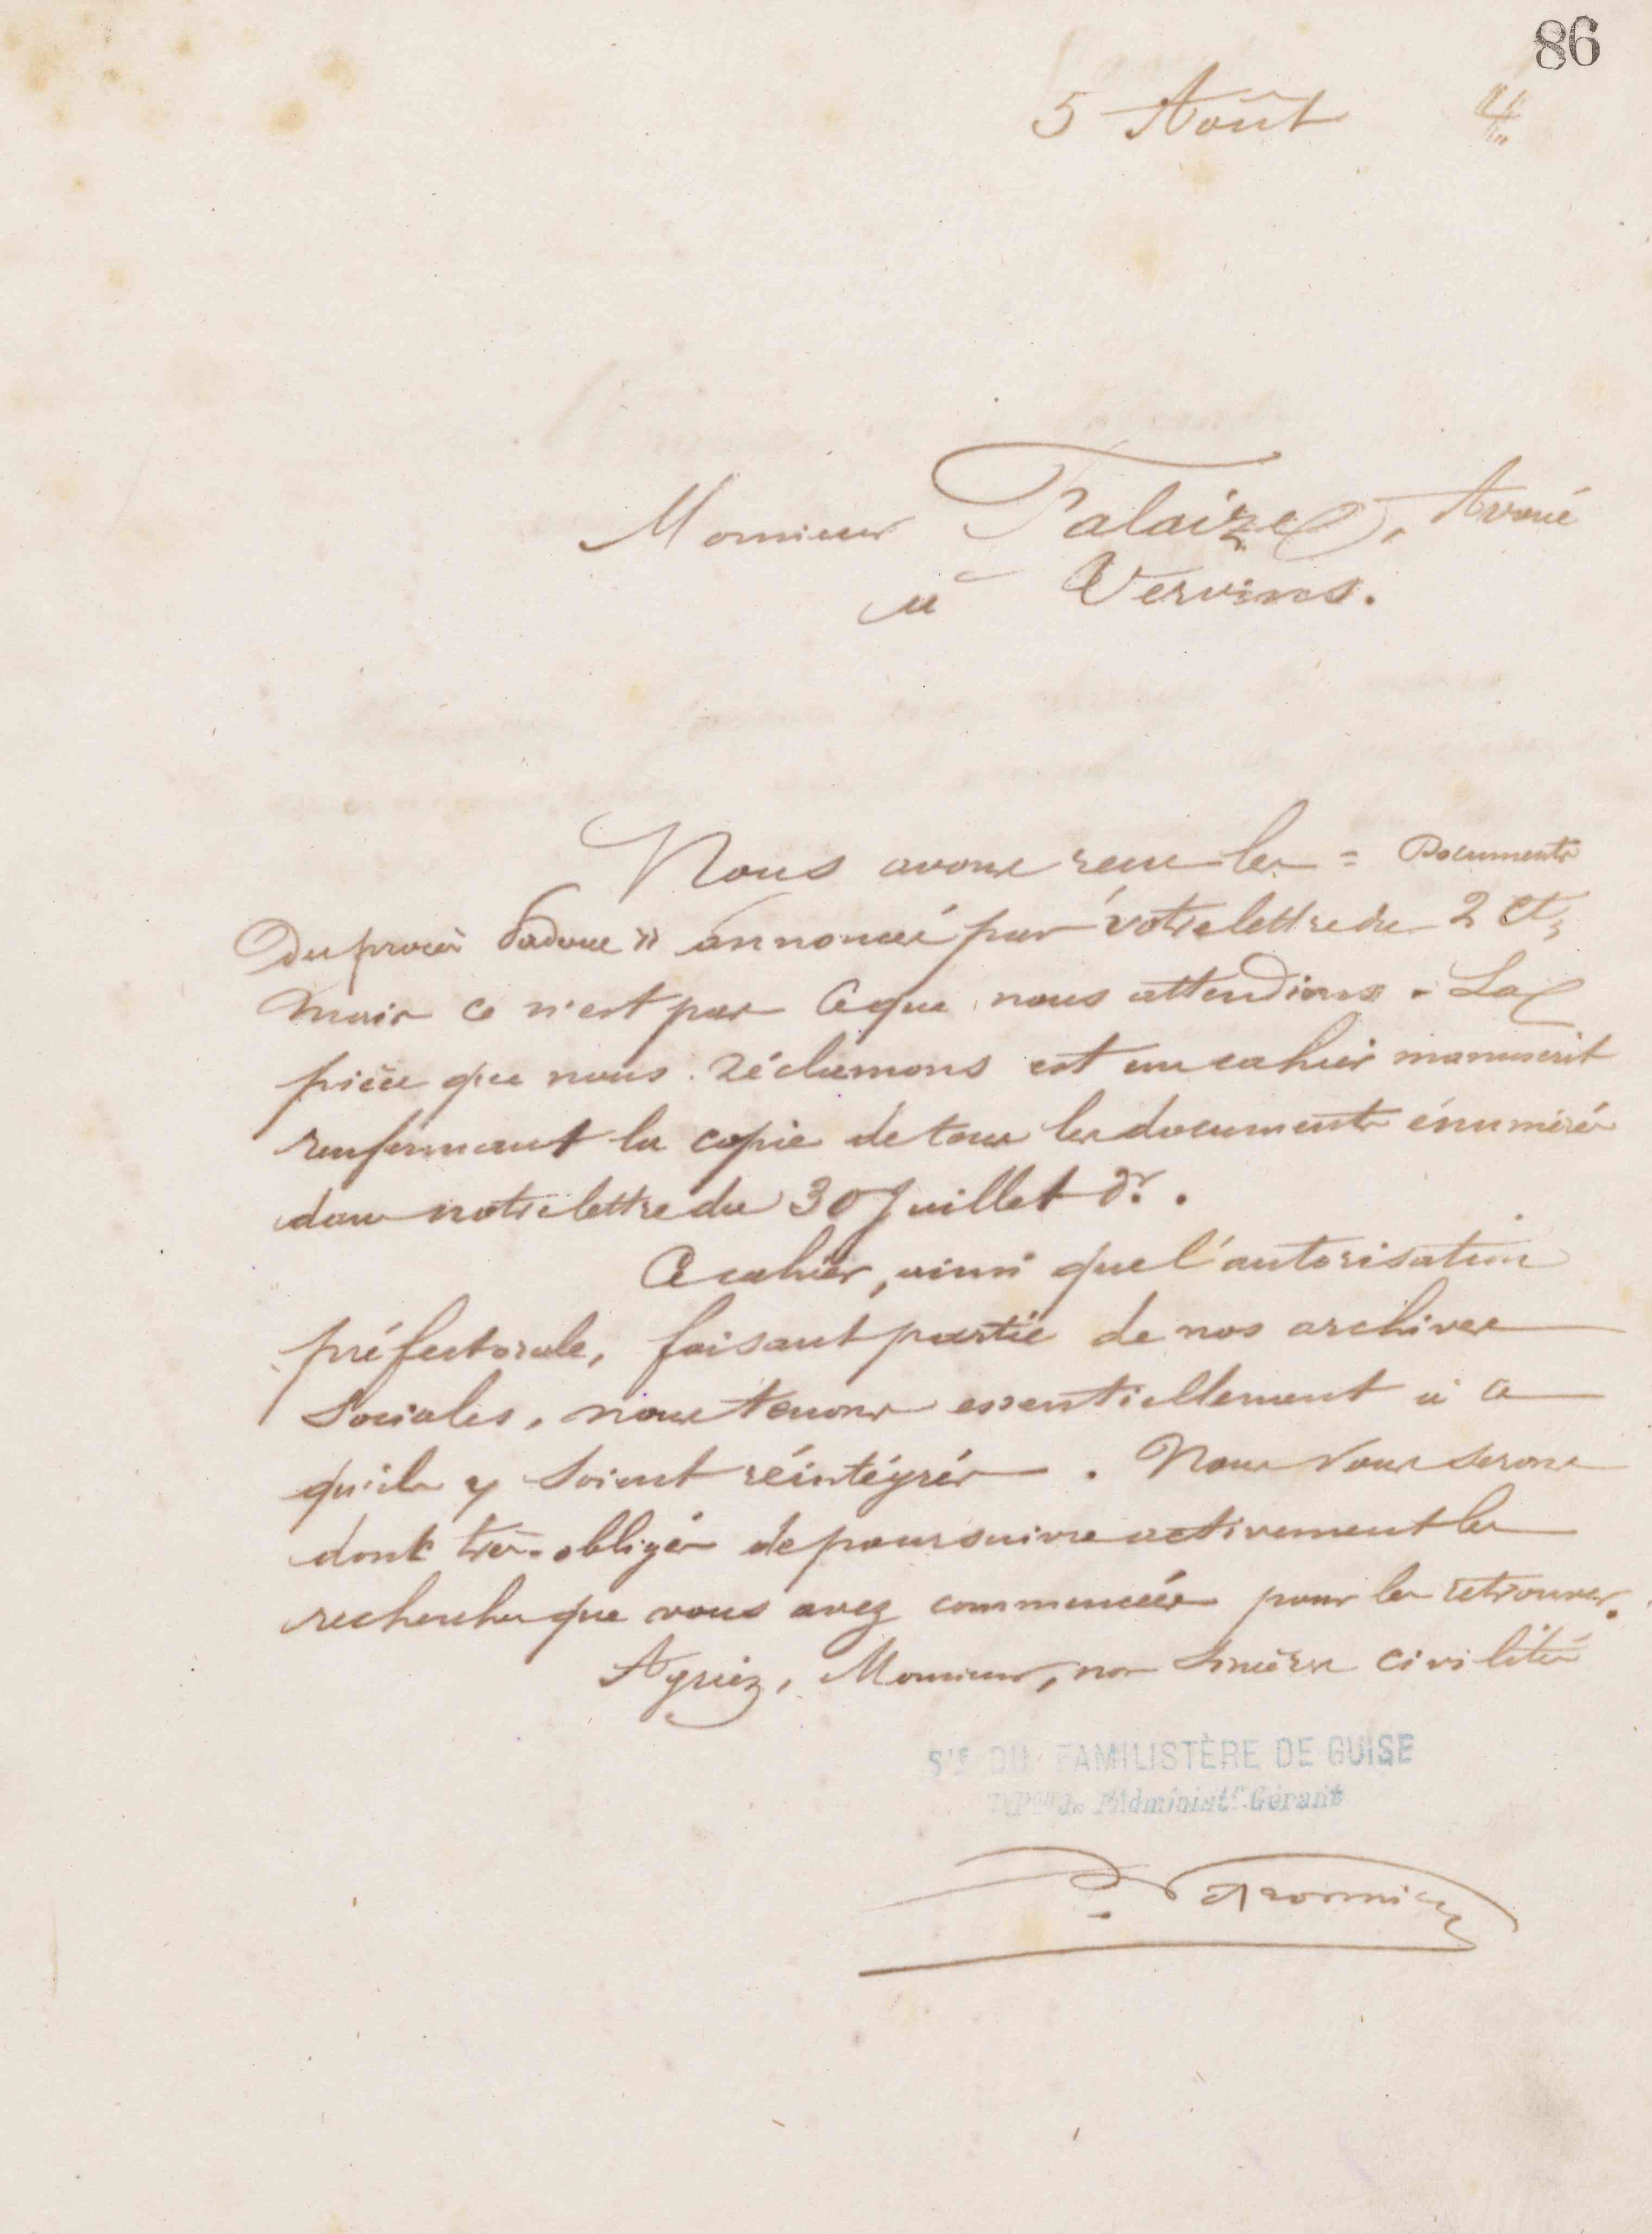 86
5 Août 4
Monsieur Falaize, Avoué
à Vervins.
Nous avons reçu les = Documents
du procès Sadoux » annoncé par votre lettre du 2 Ct,
mais ce n'est pas ce que nous attendions. La
pièce que nous réclamons est un cahier manuscrit
renfermant la copie de tous les documents énumérés
dans notre lettre du 30 Juillet dr.
Ce cahier, ainsi que l'autorisation
préfectorale, faisant partie de nos archives
Sociales, nous tenons essentiellement à ce
qu'ils y soient réintégrés. Nous vous serons
donc très-obligés de poursuivre activement les
recherches que vous avez commencées pour les retrouver.
Agréez, Monsieur, nos sincères civilités
Sté DU FAMILISTÈRE DE GUISE
Pon de l'Administr Gérant